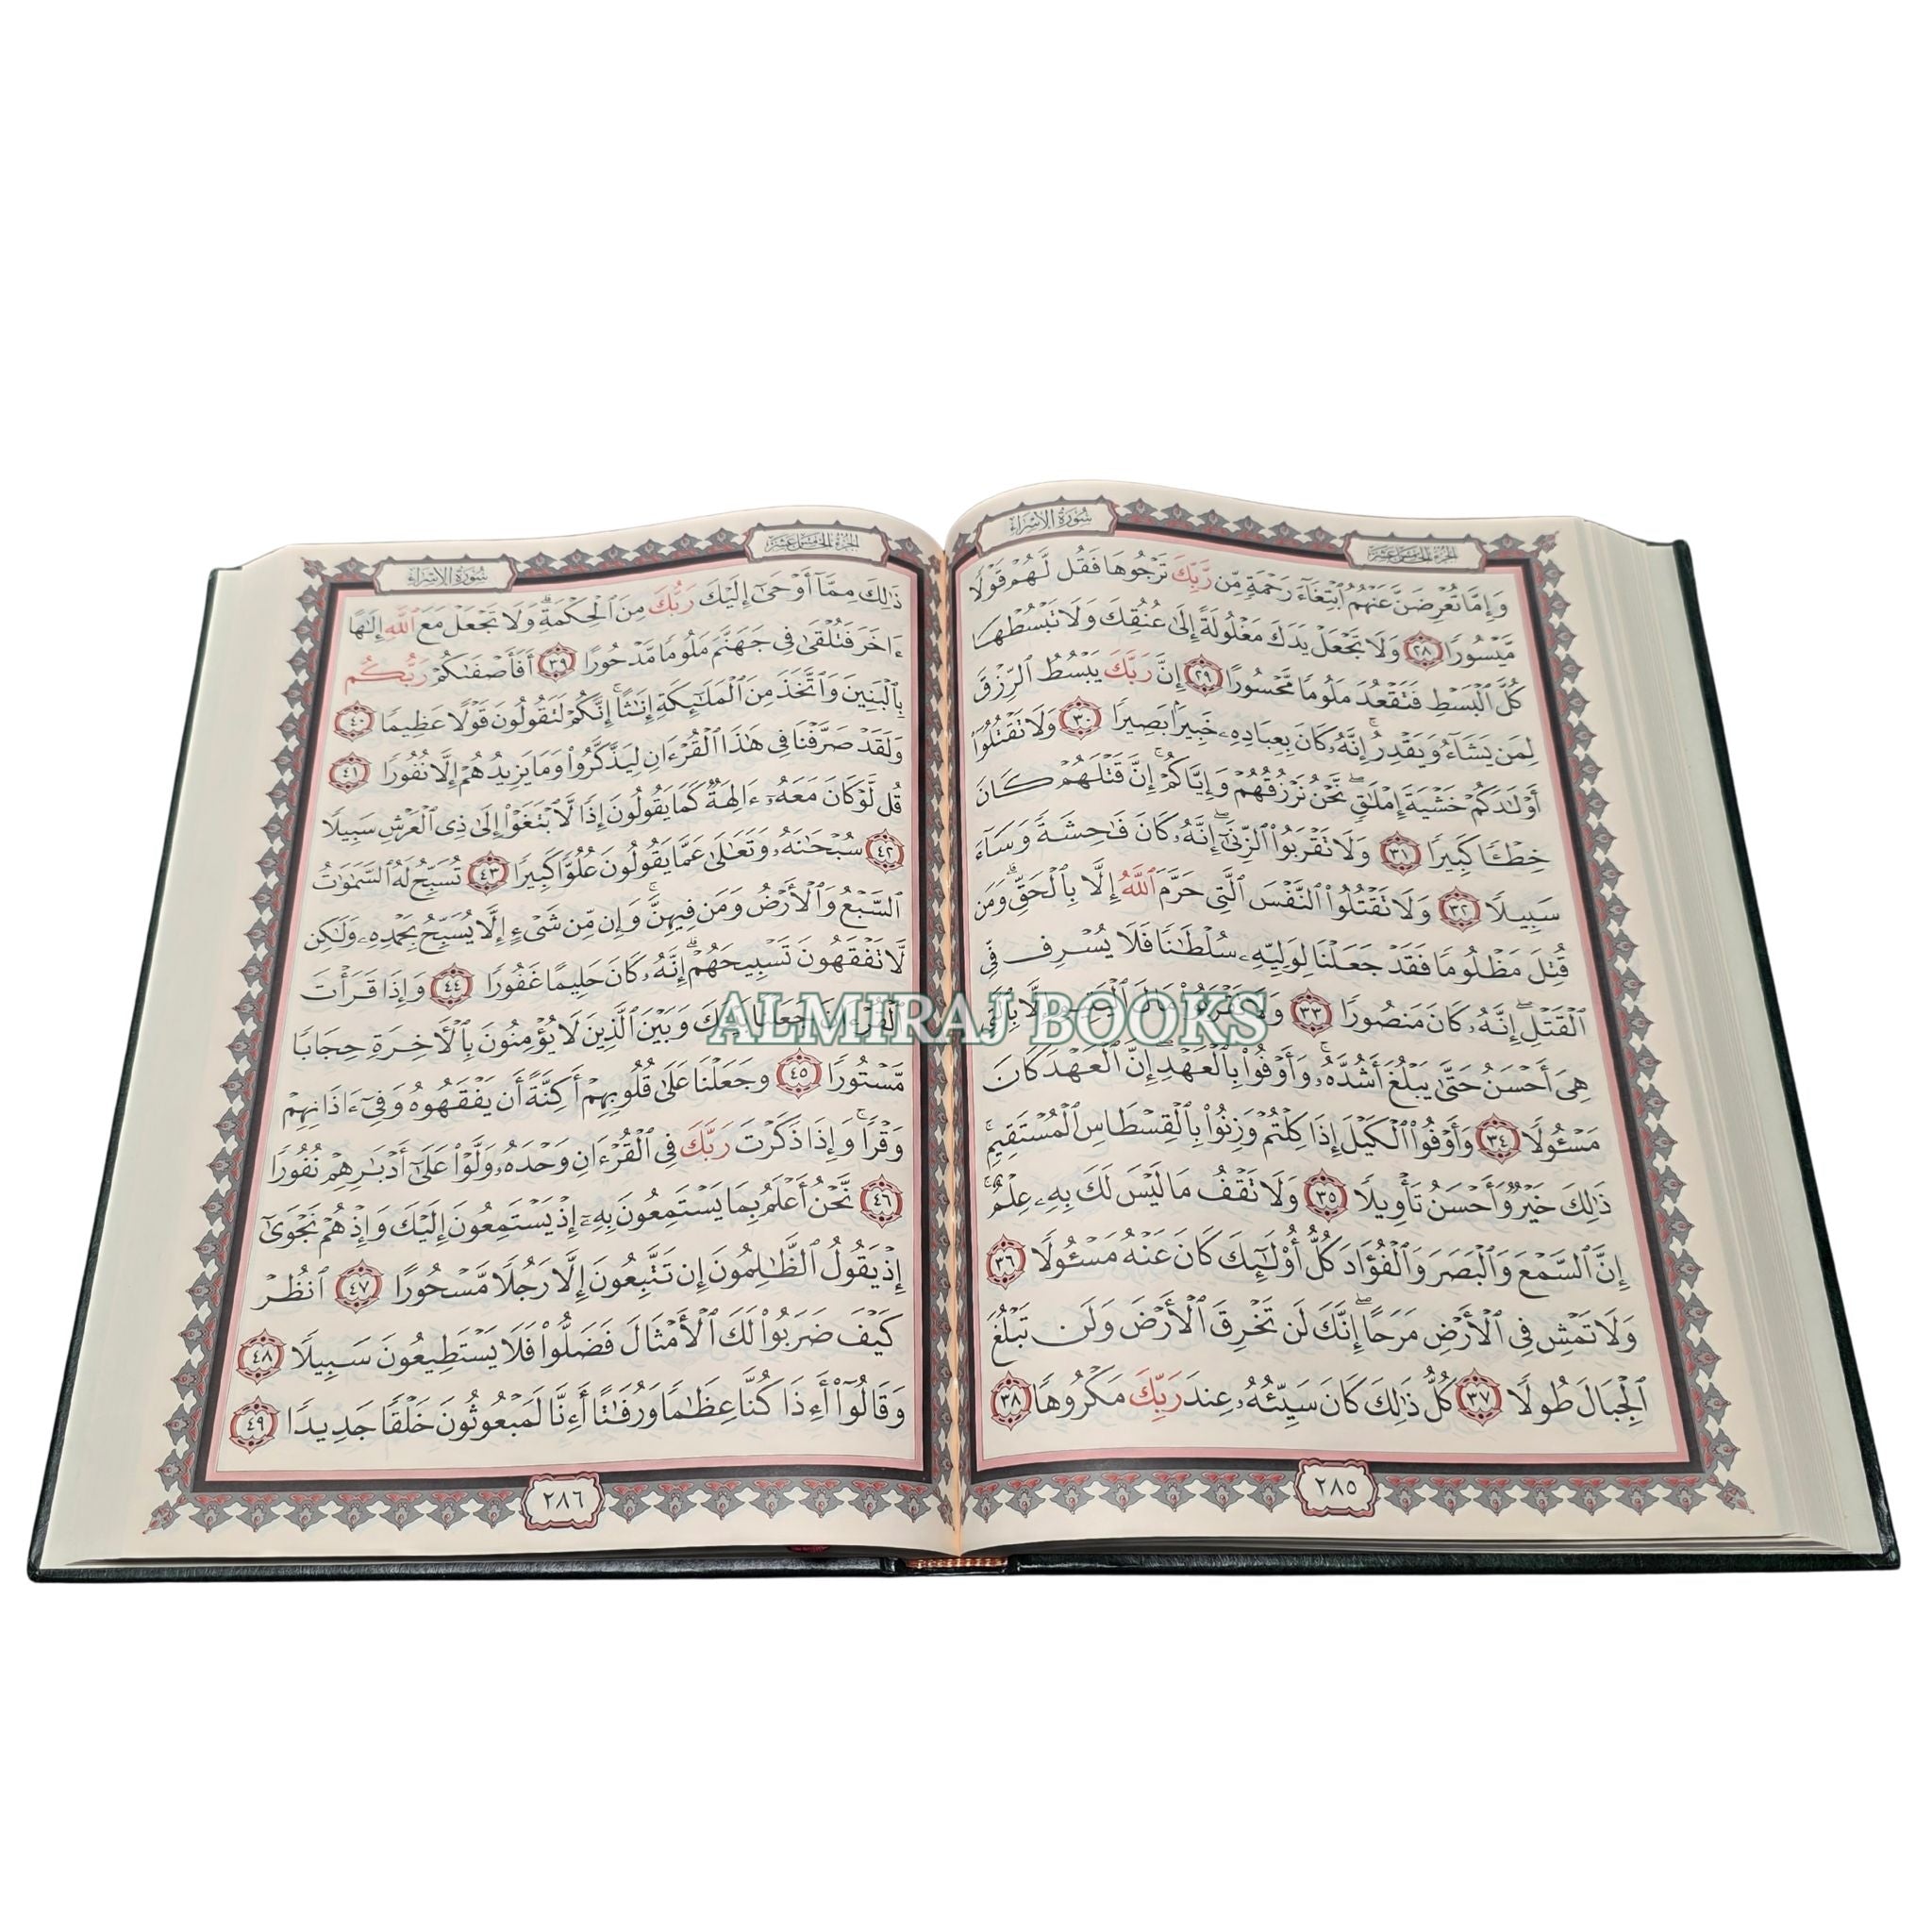 سُورَةُ الإِسْرَاءِ
الجُزْءُ الخَامِسَ عَشَرَ
وَإِمَّا تُعْرِضَنَّ عَنْهُمُ ٱبْتِغَآءَ رَحْمَةٍ مِّن رَّبِّكَ تَرْجُوهَا فَقُل لَّهُمْ قَوْلًا
مَّيْسُورًا ٢٨ وَلَا تَجْعَلْ يَدَكَ مَغْلُولَةً إِلَىٰ عُنُقِكَ وَلَا تَبْسُطْهَا
كُلَّ ٱلْبَسْطِ فَتَقْعُدَ مَلُومًا مَّحْسُورًا ٢٩ إِنَّ رَبَّكَ يَبْسُطُ ٱلرِّزْقَ
لِمَن يَشَآءُ وَيَقْدِرُ ۚ إِنَّهُۥ كَانَ بِعِبَادِهِۦ خَبِيرًۢا بَصِيرًا ٣٠ وَلَا تَقْتُلُوٓا۟
أَوْلَـٰدَكُمْ خَشْيَةَ إِمْلَـٰقٍ ۖ نَّحْنُ نَرْزُقُهُمْ وَإِيَّاكُمْ ۚ إِنَّ قَتْلَهُمْ كَانَ
خِطْـًٔا كَبِيرًا ٣١ وَلَا تَقْرَبُوا۟ ٱلزِّنَىٰٓ ۖ إِنَّهُۥ كَانَ فَـٰحِشَةً وَسَآءَ
سَبِيلًا ٣٢ وَلَا تَقْتُلُوا۟ ٱلنَّفْسَ ٱلَّتِى حَرَّمَ ٱللَّهُ إِلَّا بِٱلْحَقِّ ۗ وَمَن
قُتِلَ مَظْلُومًا فَقَدْ جَعَلْنَا لِوَلِيِّهِۦ سُلْطَـٰنًا فَلَا يُسْرِف فِّى
ٱلْقَتْلِ ۖ إِنَّهُۥ كَانَ مَنصُورًا ٣٣ وَلَا تَقْرَبُوا۟ مَالَ ٱلْيَتِيمِ إِلَّا بِٱلَّتِى
هِىَ أَحْسَنُ حَتَّىٰ يَبْلُغَ أَشُدَّهُۥ ۚ وَأَوْفُوا۟ بِٱلْعَهْدِ ۖ إِنَّ ٱلْعَهْدَ كَانَ
مَسْـُٔولًا ٣٤ وَأَوْفُوا۟ ٱلْكَيْلَ إِذَا كِلْتُمْ وَزِنُوا۟ بِٱلْقِسْطَاسِ ٱلْمُسْتَقِيمِ ۚ
ذَٰلِكَ خَيْرٌ وَأَحْسَنُ تَأْوِيلًا ٣٥ وَلَا تَقْفُ مَا لَيْسَ لَكَ بِهِۦ عِلْمٌ ۚ
إِنَّ ٱلسَّمْعَ وَٱلْبَصَرَ وَٱلْفُؤَادَ كُلُّ أُو۟لَـٰٓئِكَ كَانَ عَنْهُ مَسْـُٔولًا ٣٦
وَلَا تَمْشِ فِى ٱلْأَرْضِ مَرَحًا ۖ إِنَّكَ لَن تَخْرِقَ ٱلْأَرْضَ وَلَن تَبْلُغَ
ٱلْجِبَالَ طُولًا ٣٧ كُلُّ ذَٰلِكَ كَانَ سَيِّئُهُۥ عِندَ رَبِّكَ مَكْرُوهًا ٣٨
٢٨٥
الجُزْءُ الخَامِسَ عَشَرَ
سُورَةُ الإِسْرَاءِ
ذَٰلِكَ مِمَّآ أَوْحَىٰٓ إِلَيْكَ رَبُّكَ مِنَ ٱلْحِكْمَةِ ۗ وَلَا تَجْعَلْ مَعَ ٱللَّهِ إِلَـٰهًا
ءَاخَرَ فَتُلْقَىٰ فِى جَهَنَّمَ مَلُومًا مَّدْحُورًا ٣٩ أَفَأَصْفَىٰكُمْ رَبُّكُم
بِٱلْبَنِينَ وَٱتَّخَذَ مِنَ ٱلْمَلَـٰٓئِكَةِ إِنَـٰثًا ۚ إِنَّكُمْ لَتَقُولُونَ قَوْلًا عَظِيمًا ٤٠
وَلَقَدْ صَرَّفْنَا فِى هَـٰذَا ٱلْقُرْءَانِ لِيَذَّكَّرُوا۟ وَمَا يَزِيدُهُمْ إِلَّا نُفُورًا ٤١
قُل لَّوْ كَانَ مَعَهُۥٓ ءَالِهَةٌ كَمَا يَقُولُونَ إِذًا لَّٱبْتَغَوْا۟ إِلَىٰ ذِى ٱلْعَرْشِ سَبِيلًا
٤٢ سُبْحَـٰنَهُۥ وَتَعَـٰلَىٰ عَمَّا يَقُولُونَ عُلُوًّا كَبِيرًا ٤٣ تُسَبِّحُ لَهُ ٱلسَّمَـٰوَٰتُ
ٱلسَّبْعُ وَٱلْأَرْضُ وَمَن فِيهِنَّ ۚ وَإِن مِّن شَىْءٍ إِلَّا يُسَبِّحُ بِحَمْدِهِۦ وَلَـٰكِن
لَّا تَفْقَهُونَ تَسْبِيحَهُمْ ۗ إِنَّهُۥ كَانَ حَلِيمًا غَفُورًا ٤٤ وَإِذَا قَرَأْتَ
ٱلْقُرْءَانَ جَعَلْنَا بَيْنَكَ وَبَيْنَ ٱلَّذِينَ لَا يُؤْمِنُونَ بِٱلْـَٔاخِرَةِ حِجَابًا
مَّسْتُورًا ٤٥ وَجَعَلْنَا عَلَىٰ قُلُوبِهِمْ أَكِنَّةً أَن يَفْقَهُوهُ وَفِىٓ ءَاذَانِهِمْ
وَقْرًا ۚ وَإِذَا ذَكَرْتَ رَبَّكَ فِى ٱلْقُرْءَانِ وَحْدَهُۥ وَلَّوْا۟ عَلَىٰٓ أَدْبَـٰرِهِمْ نُفُورًا
٤٦ نَّحْنُ أَعْلَمُ بِمَا يَسْتَمِعُونَ بِهِۦٓ إِذْ يَسْتَمِعُونَ إِلَيْكَ وَإِذْ هُمْ نَجْوَىٰٓ
إِذْ يَقُولُ ٱلظَّـٰلِمُونَ إِن تَتَّبِعُونَ إِلَّا رَجُلًا مَّسْحُورًا ٤٧ ٱنظُرْ
كَيْفَ ضَرَبُوا۟ لَكَ ٱلْأَمْثَالَ فَضَلُّوا۟ فَلَا يَسْتَطِيعُونَ سَبِيلًا ٤٨
وَقَالُوٓا۟ أَءِذَا كُنَّا عِظَـٰمًا وَرُفَـٰتًا أَءِنَّا لَمَبْعُوثُونَ خَلْقًا جَدِيدًا ٤٩
٢٨٦
ALMIRAJ BOOKS